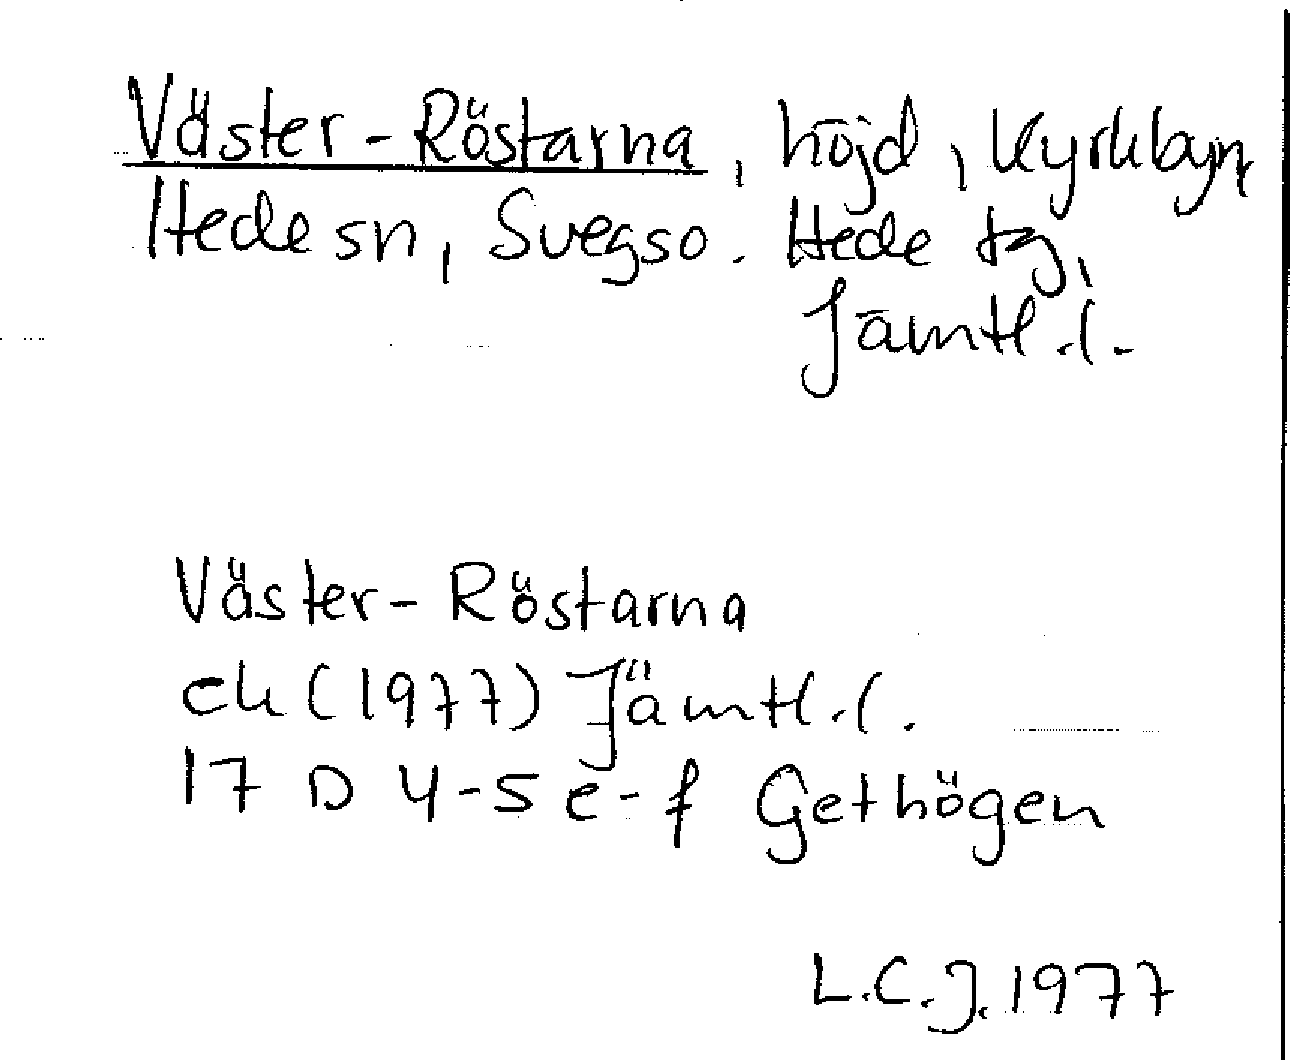 Väster-Röstarna, höjd, Kyrkbyn
Hede sn, Svegso. Hede tg,
Jämtl.l.
Väster-Röstarna
ek (1977) Jämtl.l.
17 D 4-5 e-f Gethögen
L.C.J. 1977